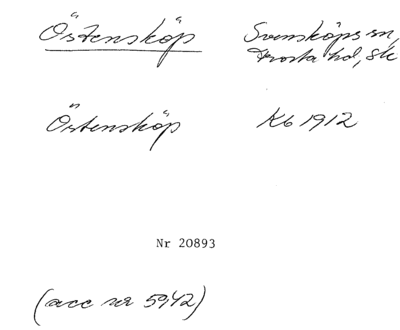 Östensköp Svensköps sn,
Frosta hd, Sk
Östensköp Kb 1912
Nr 20893
(acc nr 5942)